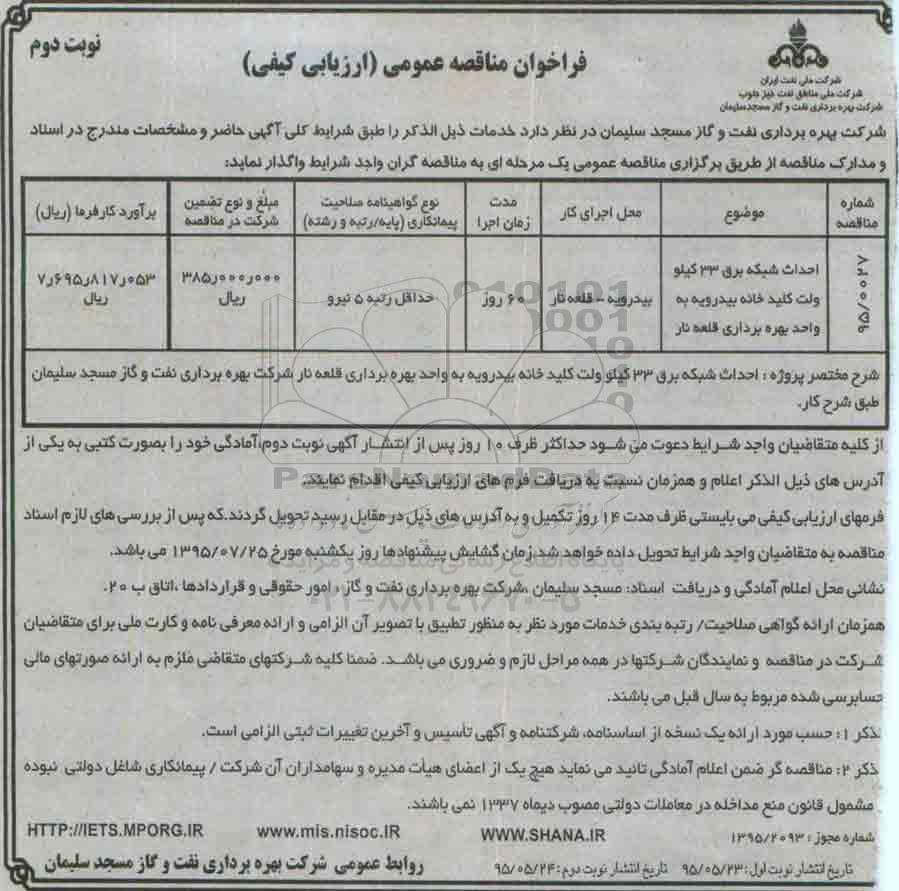 نوبت دوم
فراخوان مناقصه عمومی (ارزیابی کیفی)
شرکت ملی نفت ایران
شرکت ملی مناطق نفت خیز جنوب
شرکت بهره برداری نفت و گاز مسجدسلیمان
شرکت بهره برداری نفت و گاز مسجد سلیمان در نظر دارد خدمات ذیل الذکر را طبق شرایط کلی آگهی حاضر و مشخصات مندرج در اسناد
و مدارک مناقصه از طریق برگزاری مناقصه عمومی یک مرحله ای به مناقصه گران واجد شرایط واگذار نماید:
شماره مناقصه
موضوع
محل اجرای کار
مدت زمان اجرا
نوع گواهینامه صلاحیت پیمانکاری (پایه/رتبه و رشته)
مبلغ و نوع تضمین شرکت در مناقصه
برآورد کارفرما (ریال)
۹۵/۰۰۲۷
احداث شبکه برق ۳۳ کیلو
ولت کلید خانه بیدرویه به
واحد بهره برداری قلعه نار
بیدرویه - قلعه نار
۶۰ روز
حداقل رتبه ۵ نیرو
۳۸۵٫۰۰۰٫۰۰۰
ریال
۷٫۶۹۵٫۸۱۷٫۰۵۳
ریال
شرح مختصر پروژه : احداث شبکه برق ۳۳ کیلو ولت کلید خانه بیدرویه به واحد بهره برداری قلعه نار شرکت بهره برداری نفت و گاز مسجد سلیمان
طبق شرح کار.
از کلیه متقاضیان واجد شرایط دعوت می شود حداکثر ظرف ۱۰ روز پس از انتشار آگهی نوبت دوم،آمادگی خود را بصورت کتبی به یکی از
آدرس های ذیل الذکر اعلام و همزمان نسبت به دریافت فرم های ارزیابی کیفی اقدام نمایند.
فرمهای ارزیابی کیفی می بایستی ظرف مدت ۱۴ روز تکمیل و به آدرس های ذیل در مقابل رسید تحویل گردند.که پس از بررسی های لازم اسناد
مناقصه به متقاضیان واجد شرایط تحویل داده خواهد شد.زمان گشایش پیشنهادها روز یکشنبه مورخ ۱۳۹۵/۰۷/۲۵ می باشد.
نشانی محل اعلام آمادگی و دریافت اسناد: مسجد سلیمان ،شرکت بهره برداری نفت و گاز ، امور حقوقی و قراردادها ،اتاق ب ۲۰.
همزمان ارائه گواهی صلاحیت/ رتبه بندی خدمات مورد نظر به منظور تطبیق با تصویر آن الزامی و ارائه معرفی نامه و کارت ملی برای متقاضیان
شرکت در مناقصه و نمایندگان شرکتها در همه مراحل لازم و ضروری می باشد. ضمنا کلیه شرکتهای متقاضی ملزم به ارائه صورتهای مالی
حسابرسی شده مربوط به سال قبل می باشند.
تذکر ۱: حسب مورد ارائه یک نسخه از اساسنامه، شرکتنامه و آگهی تأسیس و آخرین تغییرات ثبتی الزامی است.
ذکر ۲: مناقصه گر ضمن اعلام آمادگی تائید می نماید هیچ یک از اعضای هیأت مدیره و سهامداران آن شرکت / پیمانکاری شاغل دولتی نبوده
مشمول قانون منع مداخله در معاملات دولتی مصوب دیماه ۱۳۳۷ نمی باشند.
شماره مجوز : ۱۳۹۵/۲۰۹۳
WWW.SHANA.IR
www.mis.nisoc.IR
HTTP://IETS.MPORG.IR
تاریخ انتشار نوبت اول: ۹۵/۰۵/۲۳ تاریخ انتشار نوبت دوم: ۹۵/۰۵/۲۴
روابط عمومی شرکت بهره برداری نفت و گاز مسجد سلیمان
ParsNamadData
پایگاه اطلاع رسانی مناقصه و مزایده